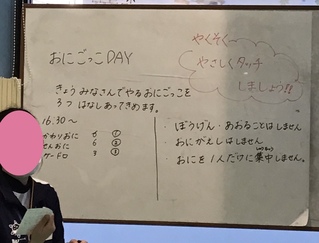 おにごっこDAY
やくそく〜
やさしくタッチ
しましょう!!
きょう みなさんでやる おにごっこを
3つ はなしあってきめます。
16:30〜
かわりおに 6 ①
せんおに 6 ②
ケードロ 3 ③
・ぼうげん・あおることはしません
・おにがえしはしません
・おにを1人だけに集中しません。
しゅうちゅう